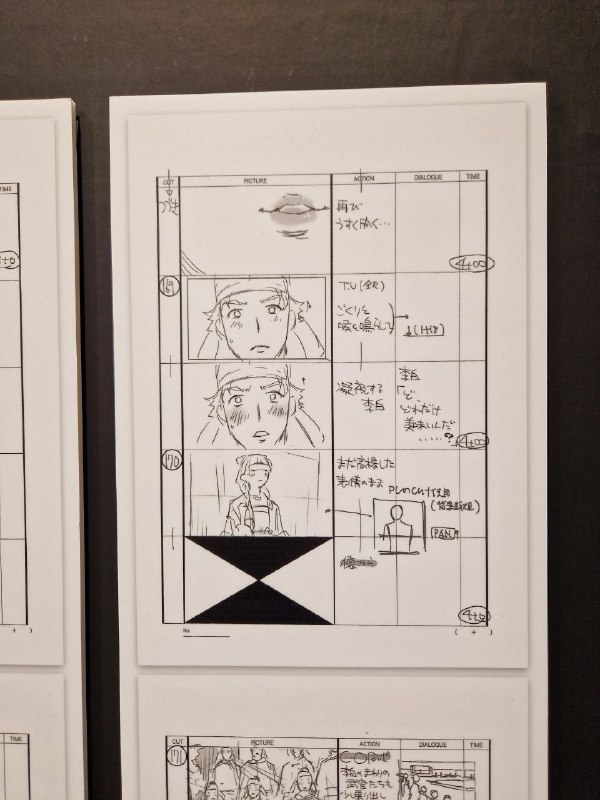 TIME
CUT PICTURE ACTION DIALOGUE TIME
つづき
再び
うすく開く…
4+00
169
T.U
ごくりと
喉を鳴らして
凝視する
李白
李白
「ど、
どれだけ
美味いんだ
……?
4+00
170
まだ高揚した
表情のまま
PAN
4+0
No.
( + )
TIME
CUT PICTURE ACTION DIALOGUE TIME
171
李白のまわりの
武官たちも